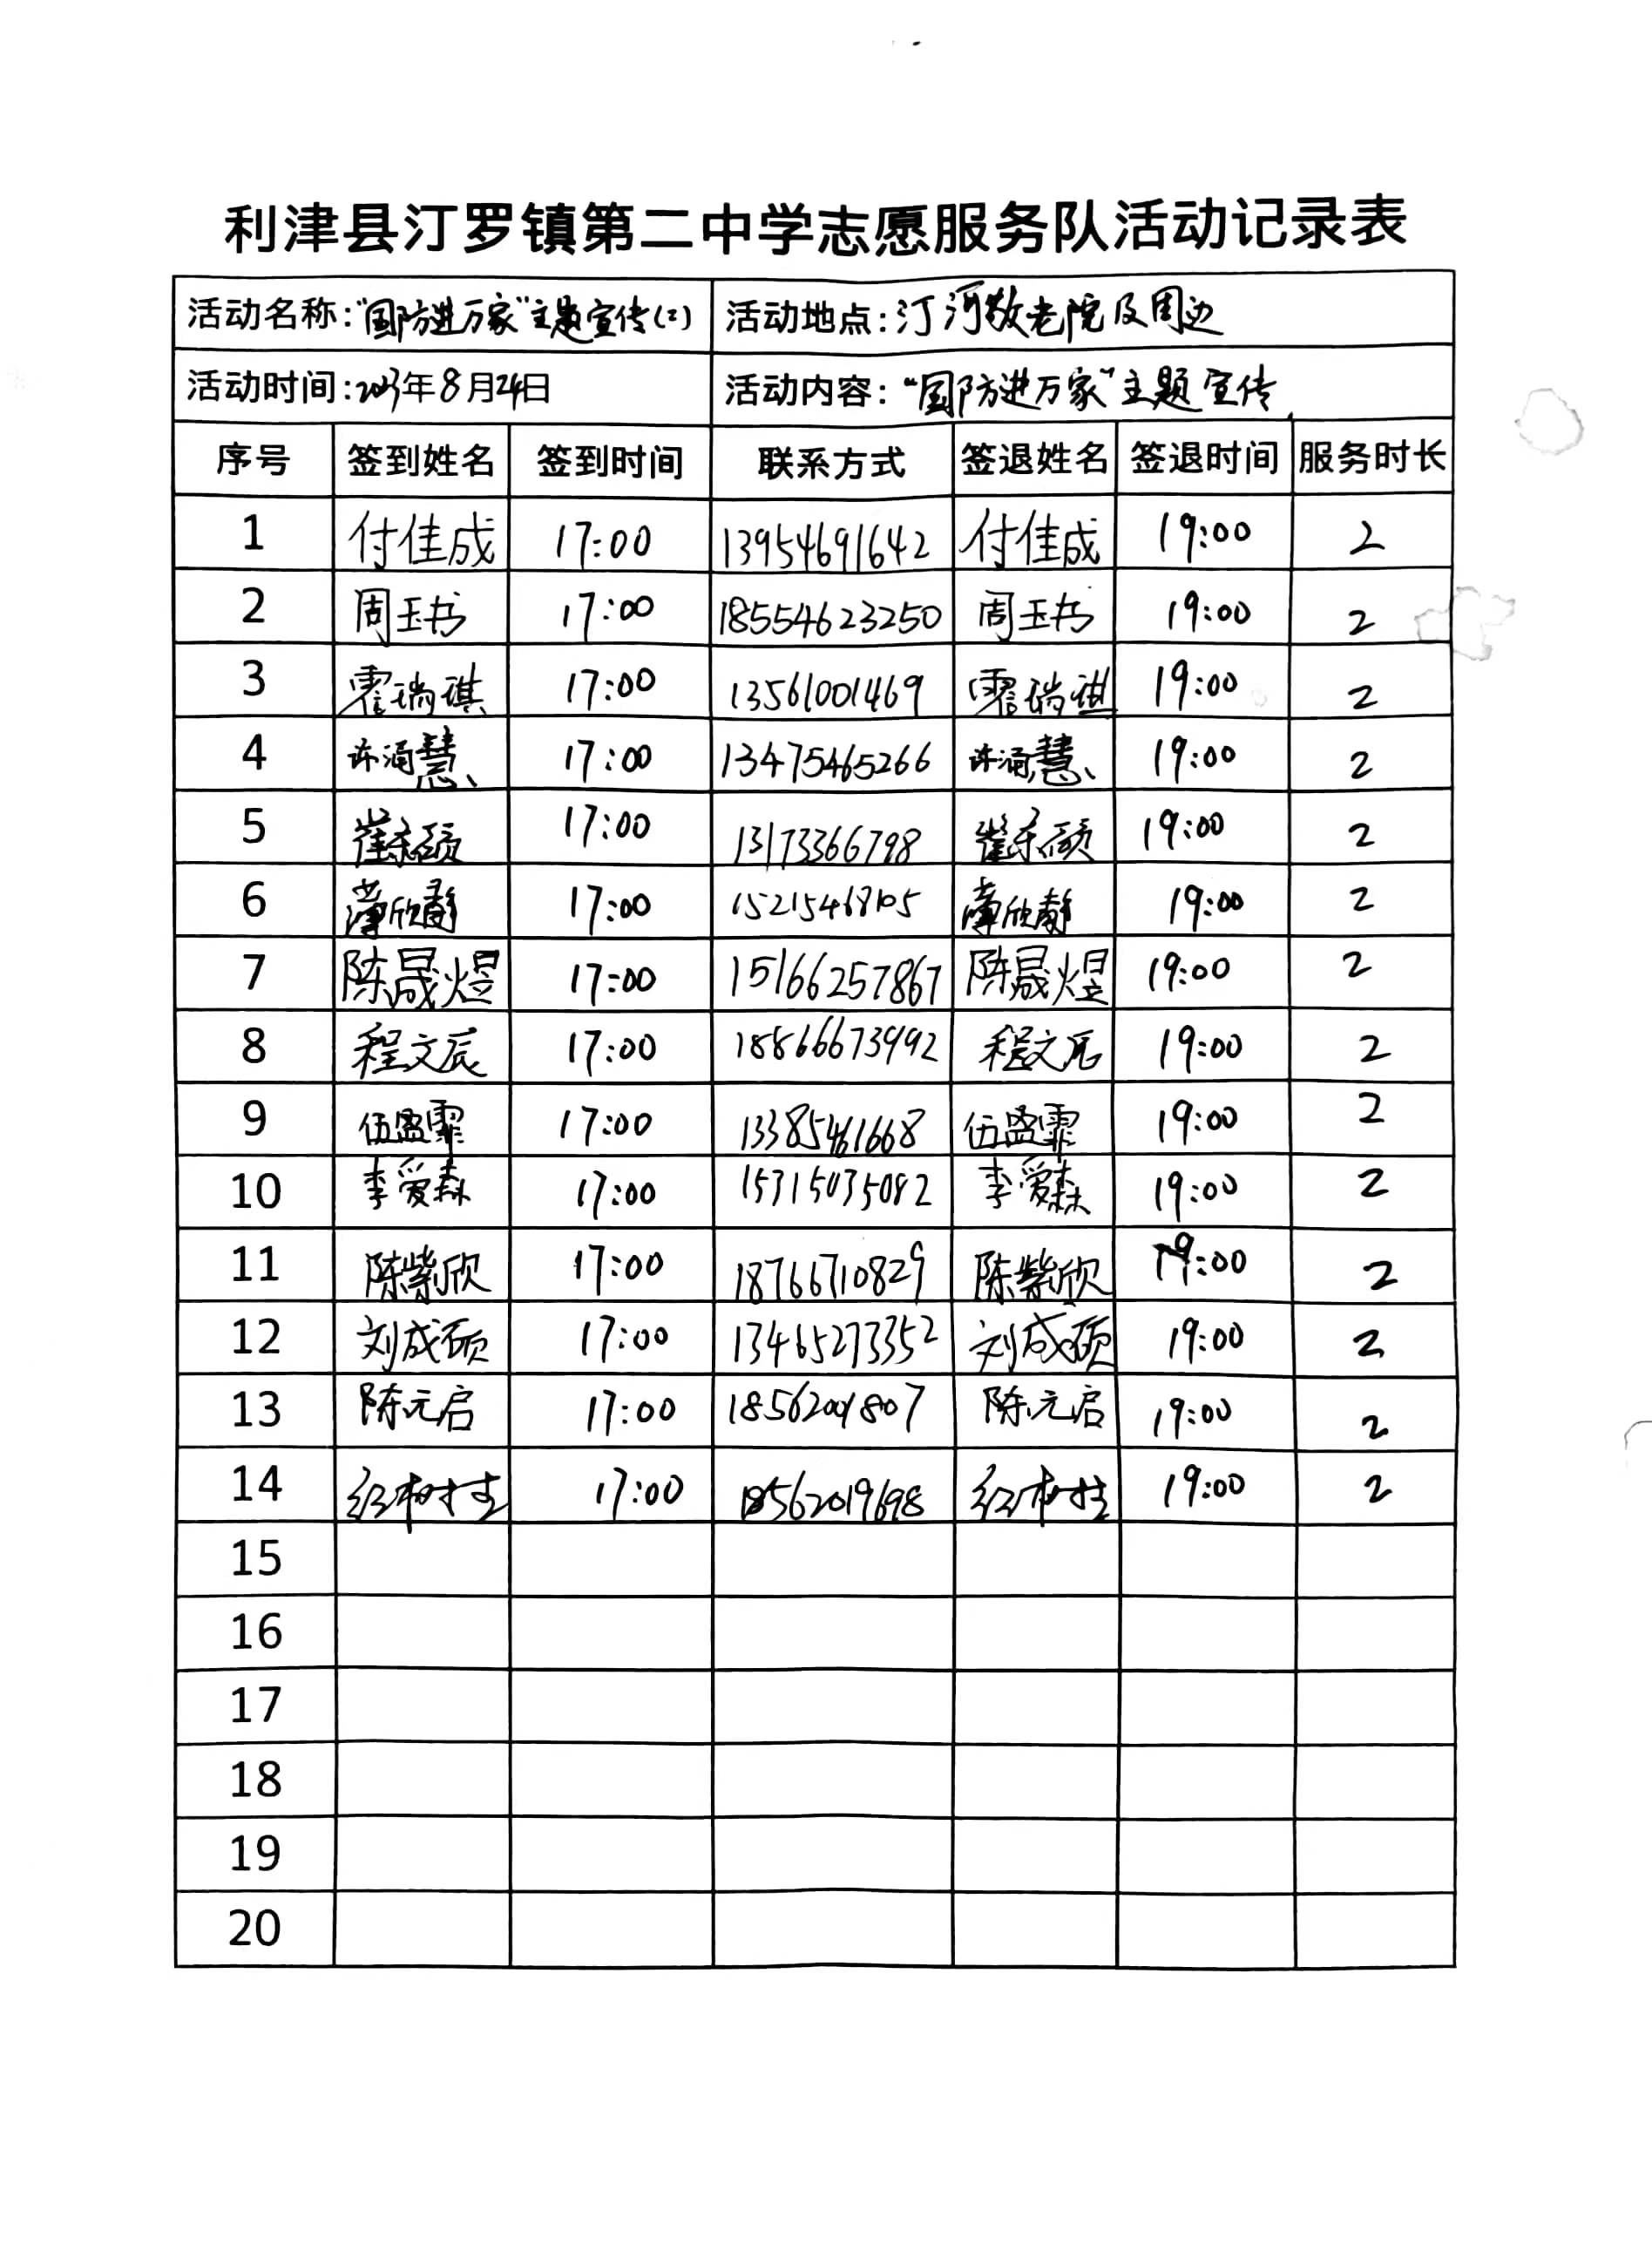 利津县汀罗镇第二中学志愿服务队活动记录表
活动名称:"国防进万家"主题宣传(二) 活动地点:汀河敬老院及周边
活动时间:2023年8月24日 活动内容:"国防进万家"主题宣传
序号 签到姓名 签到时间 联系方式 签退姓名 签退时间 服务时长
1 付佳成 17:00 13954691642 付佳成 19:00 2
2 周玉书 17:00 18554623250 周玉书 19:00 2
3 霍瑞琪 17:00 13561001469 霍瑞琪 19:00 2
4 许涵慧 17:00 13475465266 许涵慧 19:00 2
5 17:00 13173366798 19:00 2
6 薄欣静 17:00 15215468105 薄欣静 19:00 2
7 陈晟煜 17:00 15166257867 陈晟煜 19:00 2
8 程文辰 17:00 18866673992 程文辰 19:00 2
9 伍盈霏 17:00 13385461668 伍盈霏 19:00 2
10 李爱森 17:00 15315035082 李爱森 19:00 2
11 陈紫欣 17:00 18766710829 陈紫欣 19:00 2
12 刘成硕 17:00 13465273352 刘成硕 19:00 2
13 陈元启 17:00 18562001807 陈元启 19:00 2
14 纪树柱 17:00 18562019698 纪树柱 19:00 2
15
16
17
18
19
20